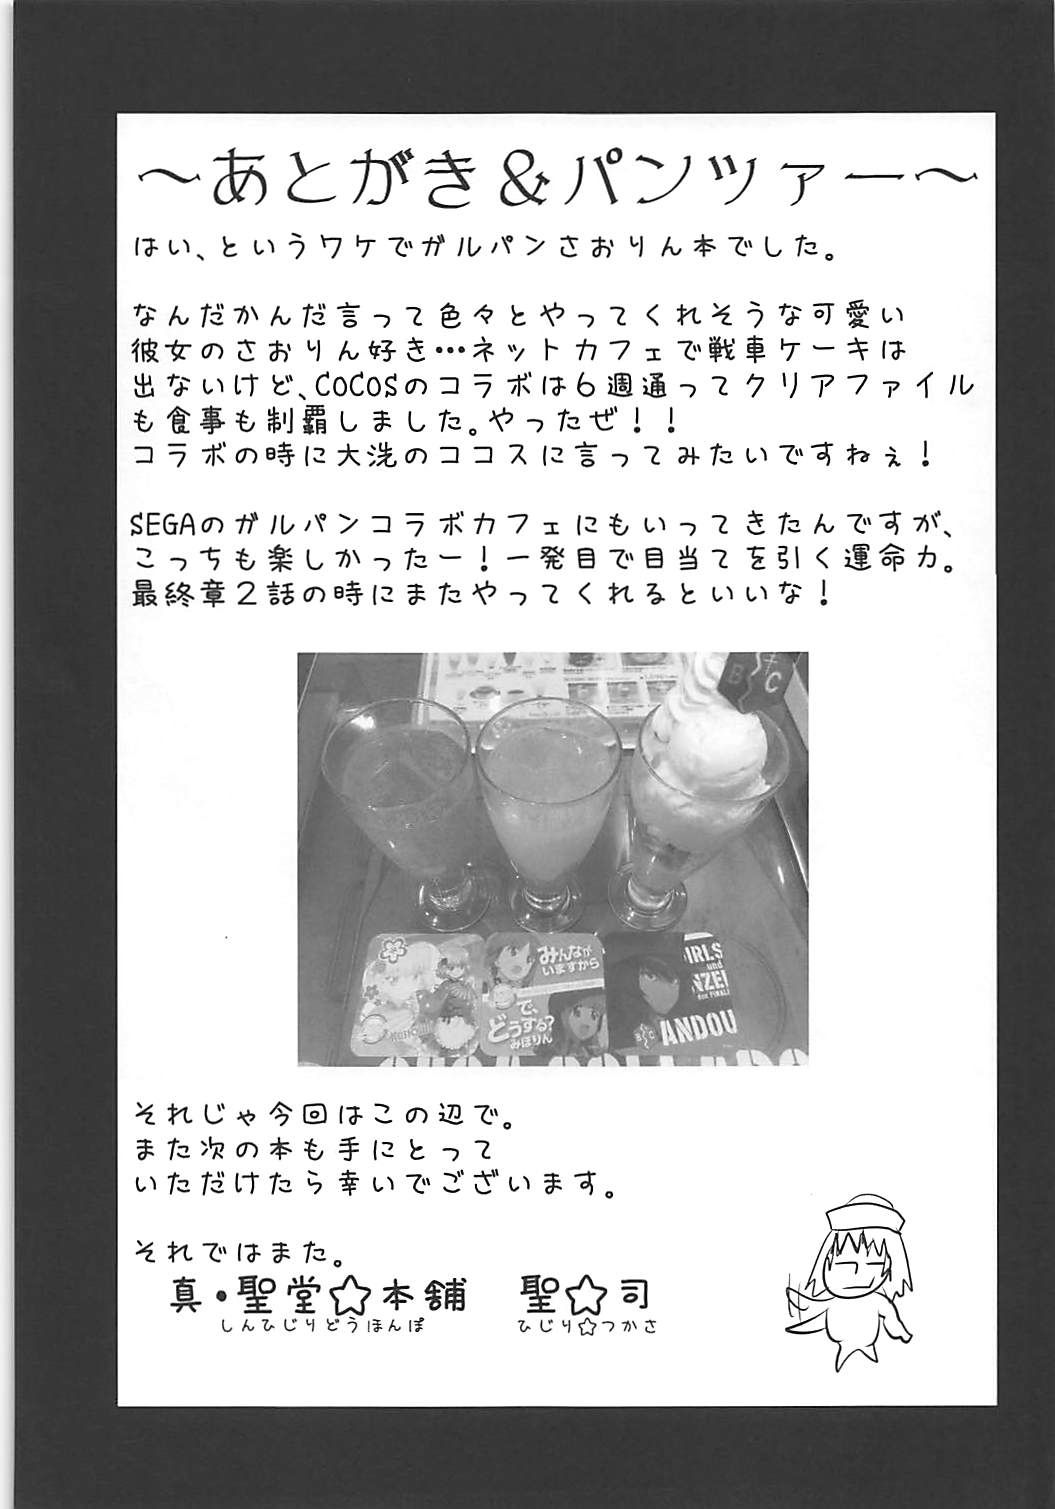 ～あとがき＆パンツァー～
はい、というワケでガルパンさおりん本でした。
なんだかんだ言って色々とやってくれそうな可愛い
彼女のさおりん好き…ネットカフェで戦車ケーキは
出ないけど、COCOSのコラボは6週通ってクリアファイル
も食事も制覇しました。やったぜ！！
コラボの時に大洗のココスに言ってみたいですねぇ！
SEGAのガルパンコラボカフェにもいってきたんですが、
こっちも楽しかったー！一発目で目当てを引く運命力。
最終章2話の時にまたやってくれるといいな！
B C
みんなが
いますから
で、
どうする？
みほりん
GIRLS
und
PANZER
der FINALE
B C
ANDOU
それじゃ今回はこの辺で。
また次の本も手にとって
いただけたら幸いでございます。
それではまた。
真・聖堂☆本舗　聖☆司
しんひじりどうほんぽ　ひじり☆つかさ